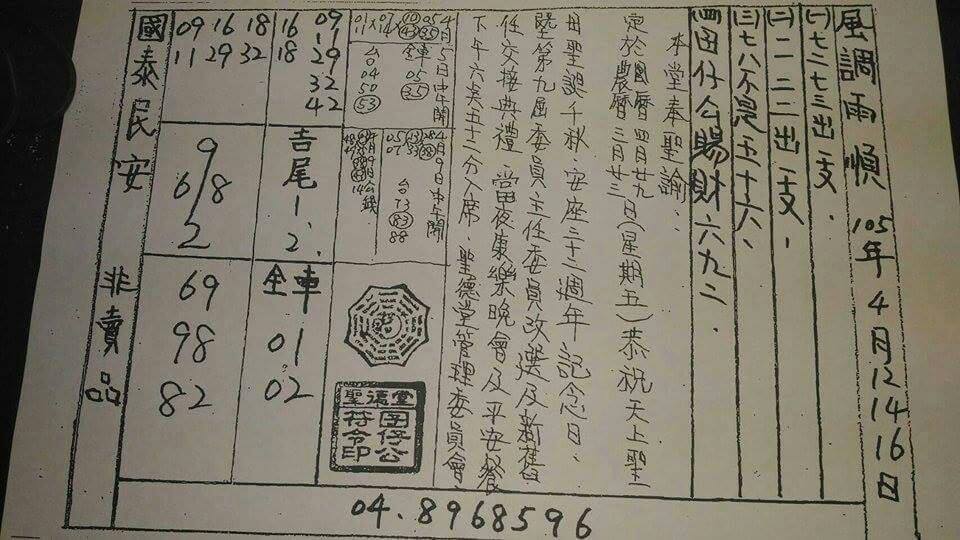 風調雨順 105年4月12 14 16日
㈠七三七三出一支.
㈡一二三出一支.
㈢七八不是五十六.
㈣囝仔公賜財六九二.
本堂奉聖諭.
定於國曆四月廿九日(星期五)恭祝天上聖
農曆三月廿三
母聖誕千秋.安座二十二週年記念日.
暨第九屆委員.主任委員改選及新舊
任交接典禮.當夜康樂晚會及平安餐
下午六點五十二分入席.聖德堂管理委員會
4月5日中午開
全車 05 35
台 04 50 53
4月9日中午開
05 07
台 73 83 88
聖德堂
囝仔公
符令印
16 18
09 1 29 32 42
吉尾 1. 2.
全車 01 02
09 16 18
11 29 32
9
6/8
2
69
98
82
國泰民安 非賣品
04.8968596